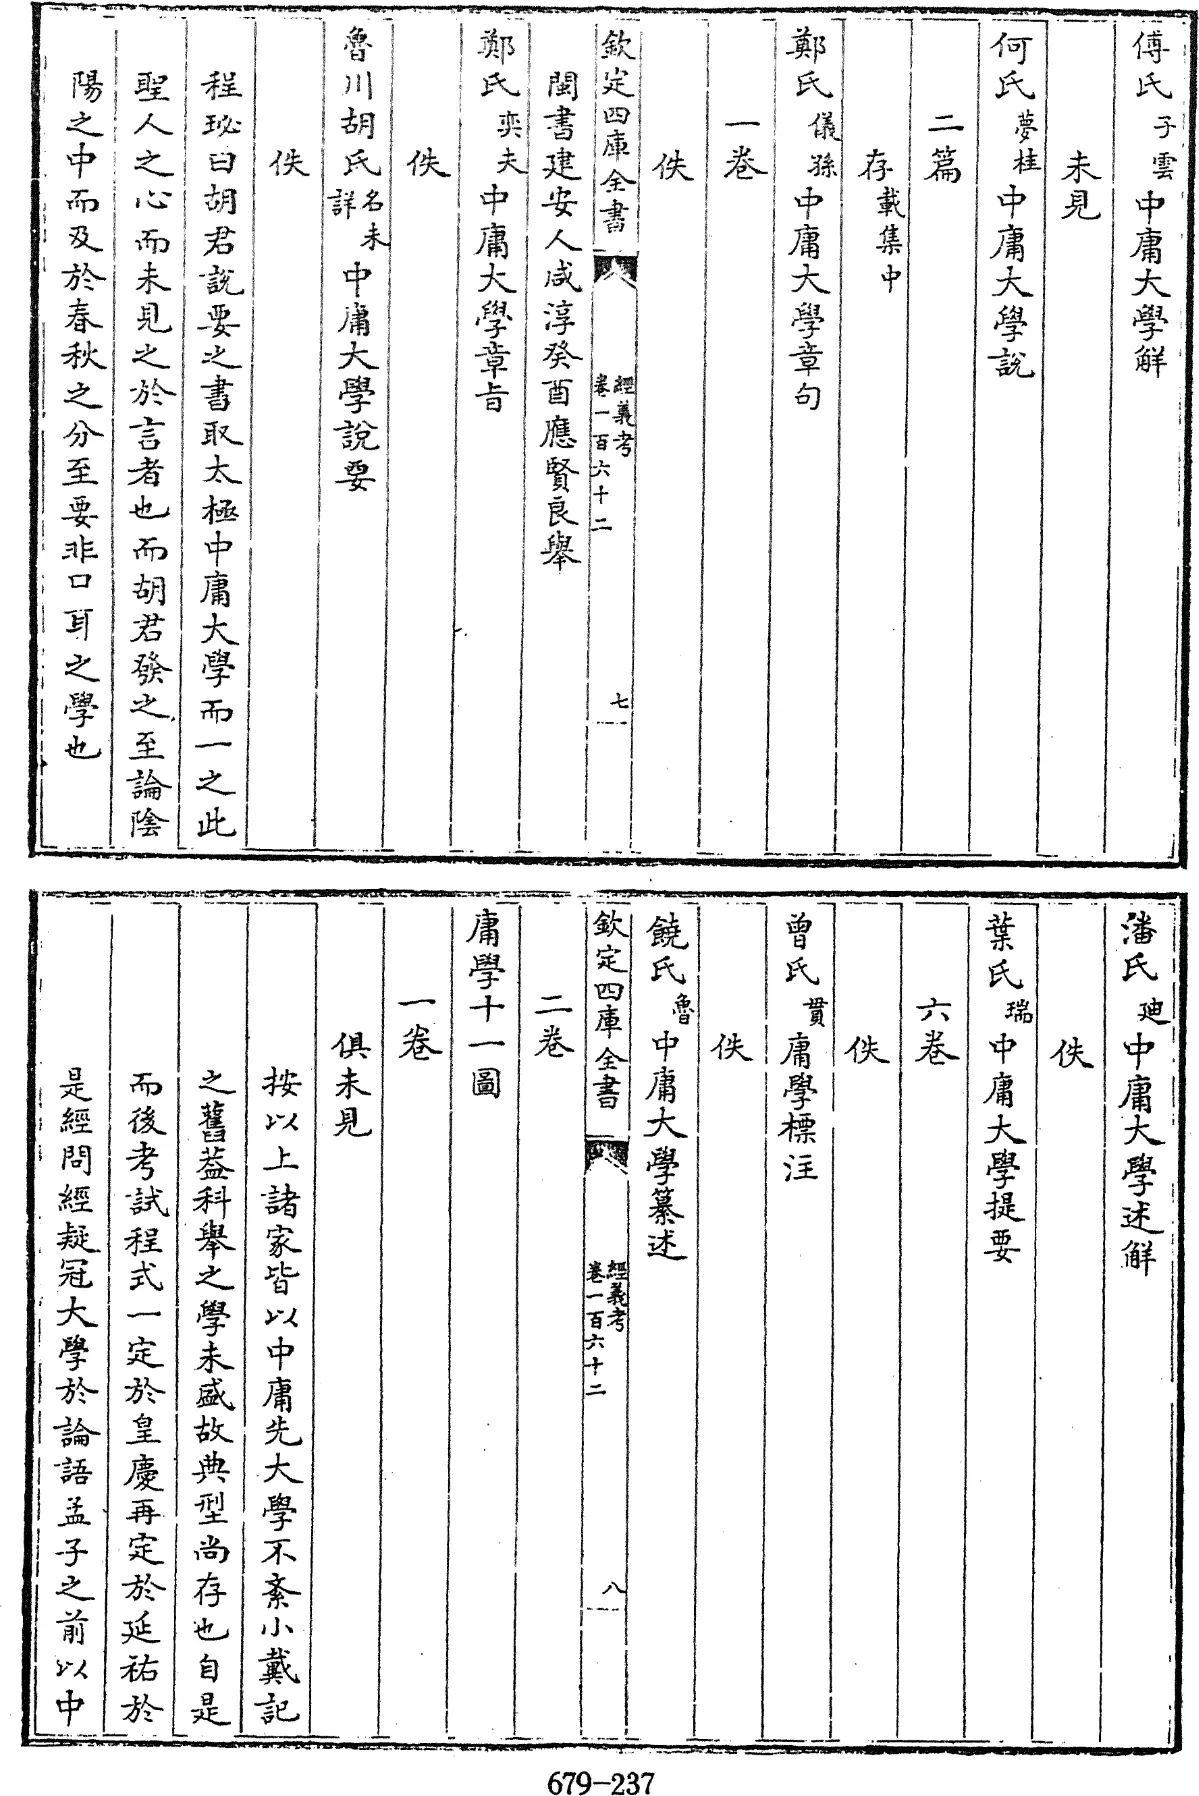 傅氏子雲中庸大學解
未見
何氏夢桂中庸大學說
二篇
存載集中
鄭氏儀孫中庸大學章句
一卷
佚
欽定四庫全書 經義考卷一百六十二 七
閩書建安人咸淳癸酉應賢良舉
鄭氏奕夫中庸大學章旨
佚
魯川胡氏名未詳中庸大學說要
佚
程珌曰胡君說要之書取太極中庸大學而一之此
聖人之心而未見之於言者也而胡君發之至論陰
陽之中而及於春秋之分至要非口耳之學也
潘氏迪中庸大學述解
佚
葉氏瑞中庸大學提要
六卷
佚
曾氏貫庸學標注
佚
饒氏魯中庸大學纂述
欽定四庫全書 經義考卷一百六十二 八
二卷
庸學十一圖
一卷
俱未見
按以上諸家皆以中庸先大學不紊小戴記
之舊葢科舉之學未盛故典型尚存也自是
而後考試程式一定於皇慶再定於延祐於
是經問經疑冠大學於論語孟子之前以中
679-237